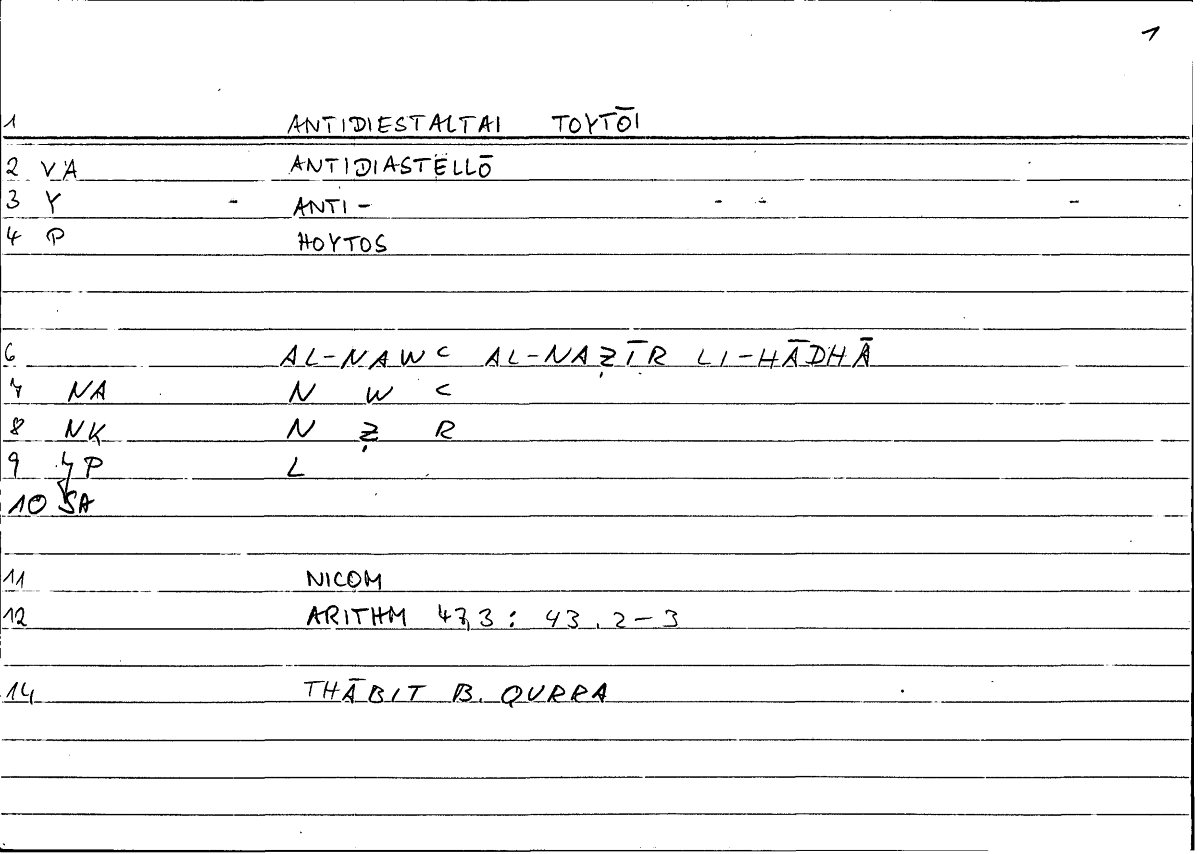 1
1 ANTIDIESTALTAI TOYTŌI
2 VA ANTIDIASTELLŌ
3 Y - ANTI - - - -
4 P HOYTOS
6 AL-NAWC AL-NAẒĪR LI-HĀDHĀ
7 NA N W C
8 NK N Ẓ R
9 P L
10 SA
11 NICOM
12 ARITHM 47,3 : 43.2-3
14 THĀBIT B. QURRA